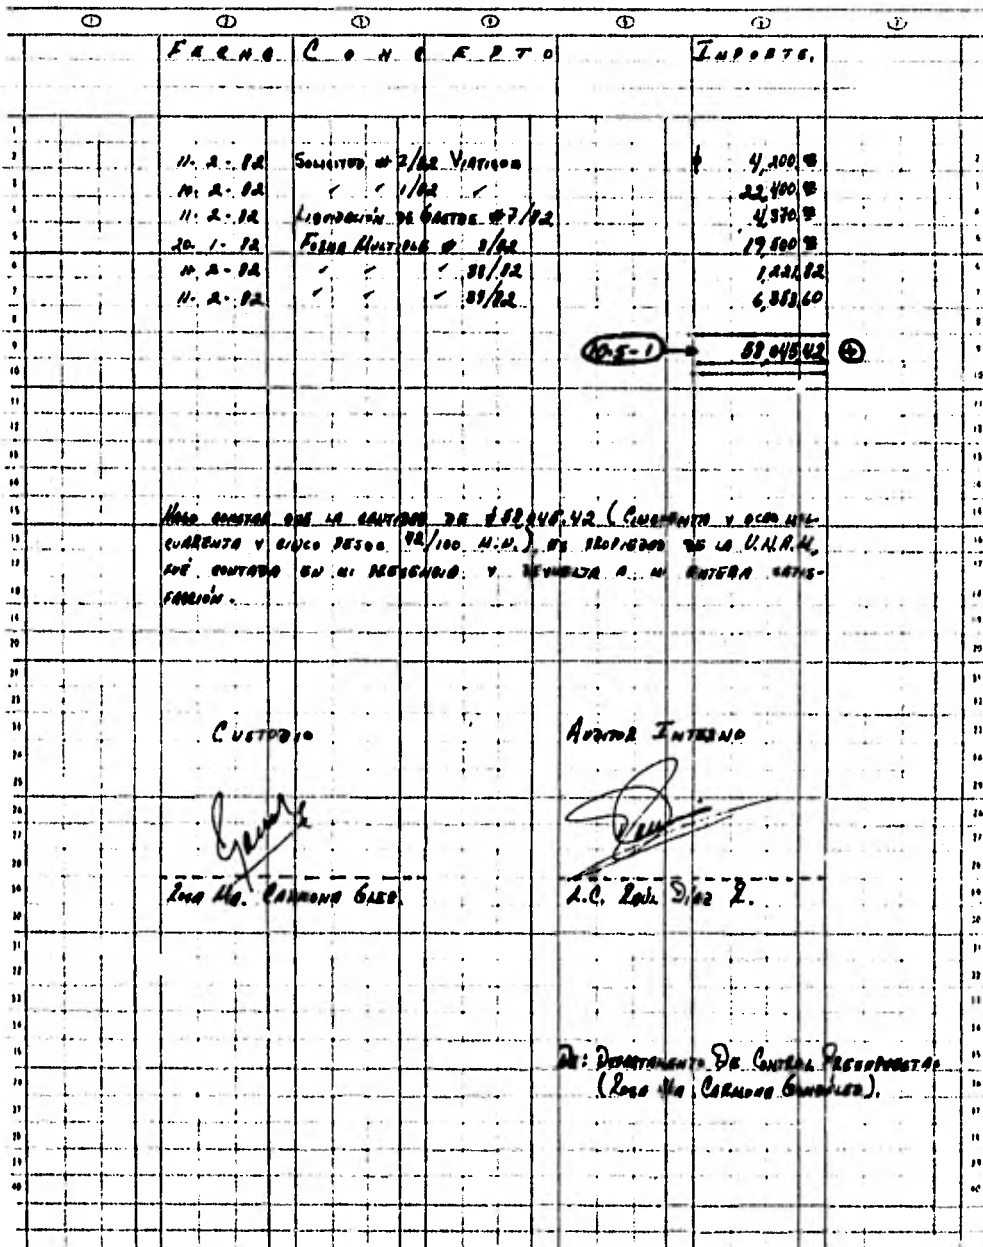 FECHA CONCEPTO IMPORTE.
11-2-82 SOLICITUD # 2/82 VIATICOS $ 4,200.00
11-2-82 " " 1/82 " 22,400.00
11-2-82 LIQUIDACIÓN DE GASTOS #7/82 4,370.00
20-1-82 FORMA MULTIPLE # 8/82 19,500.00
11-2-82 " " " 38/82 1,221.82
11-2-82 " " " 39/82 6,353.60
10-5-1 58,045.42
HAGO CONSTAR QUE LA CANTIDAD DE $58,045.42 (CINCUENTA Y OCHO MIL
CUARENTA Y CINCO PESOS 42/100 M.N.), ES PROPIEDAD DE LA U.N.A.M.,
FUÉ CONTADA EN MI PRESENCIA Y DEVUELTA A MI ENTERA SATIS-
FACCIÓN.
CUSTODIO AUDITOR INTERNO
ROSA MA. CARMONA GLEZ. L.C. RAÚL DÍAZ R.
DE: DEPARTAMENTO DE CONTROL PRESUPUESTAL
(ROSA MA. CARMONA GONZÁLEZ).